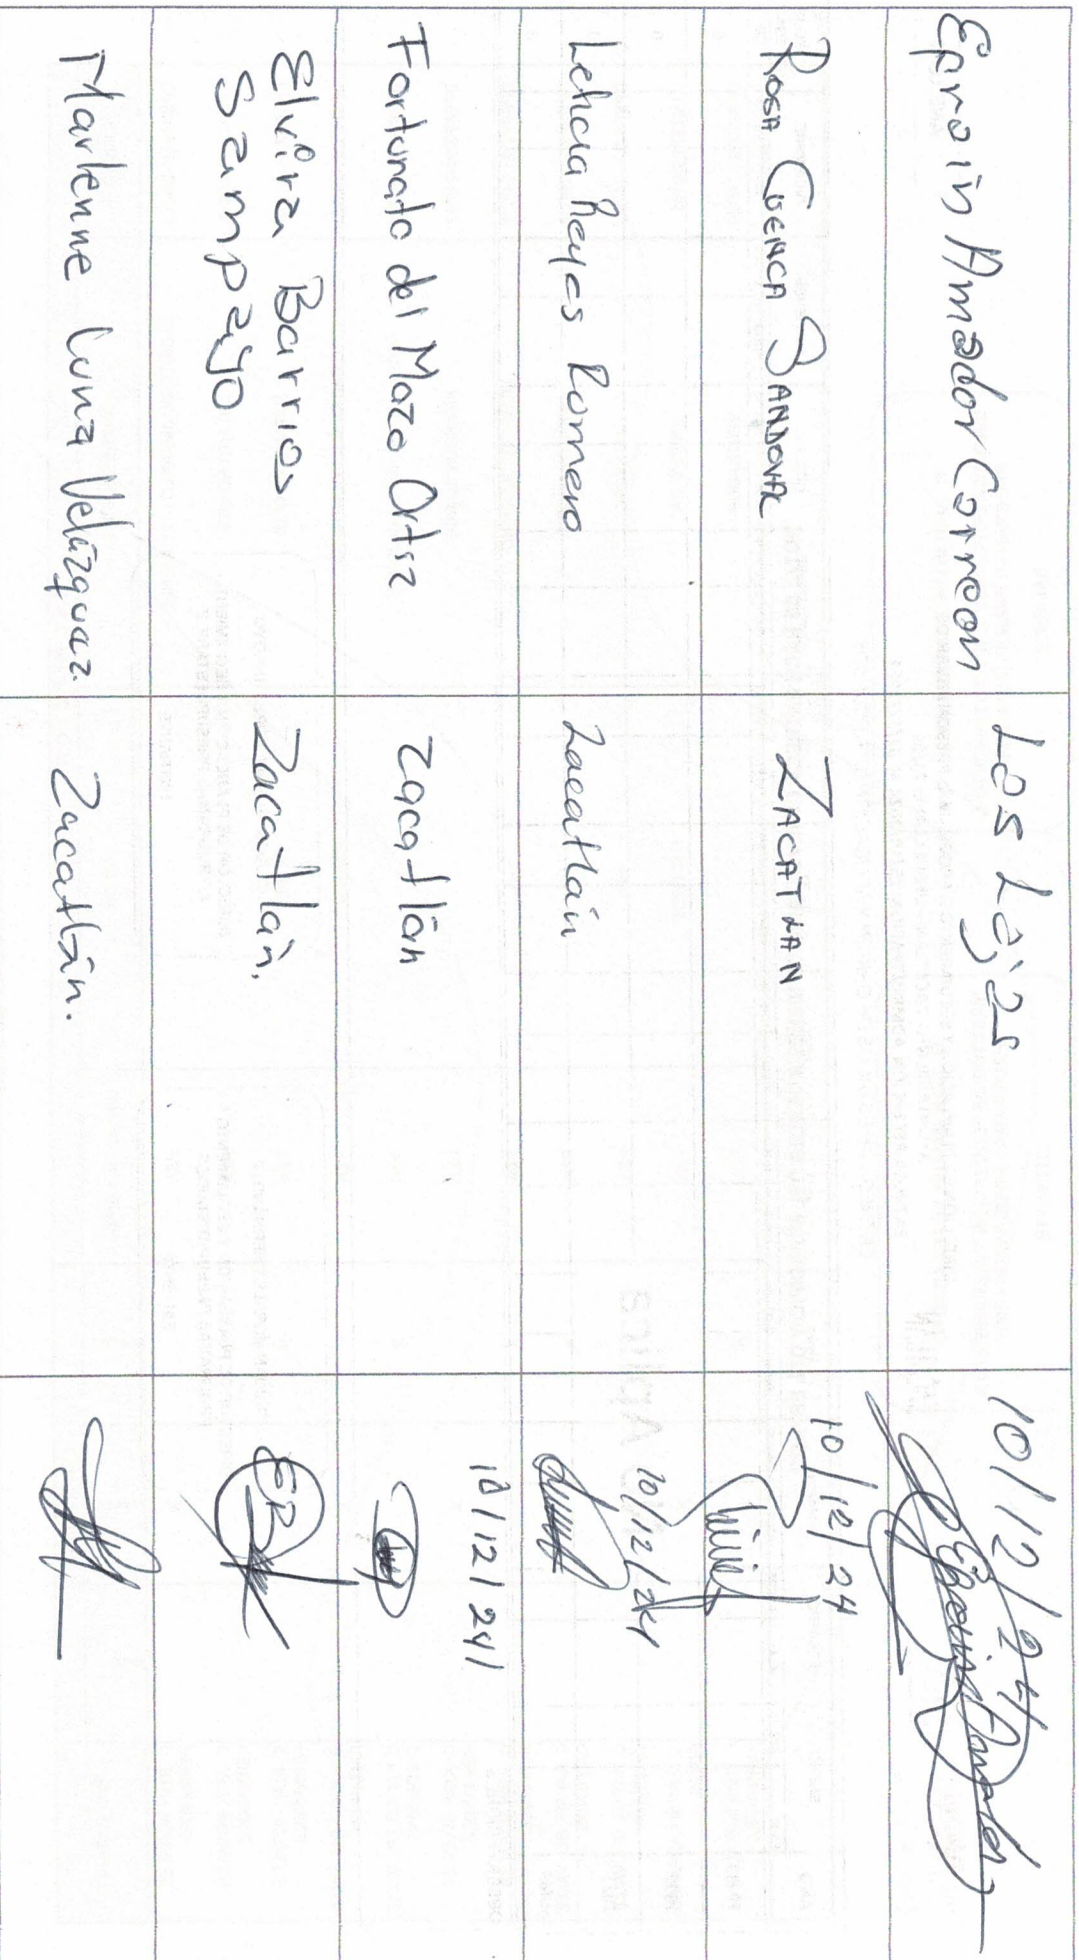 Efraín Amador Carreon
Las Lajas
10/12/24
Efrain Amador
Rosa Cuenca Sandoval
Zacatlan
10/12/24
Leticia Reyes Romero
Zacatlán
10/12/24
Fortunato del Mazo Ortiz
Zacatlán
10/12/24
Elvira Barrios
Sampayo
Zacatlán.
EB
Marlenne Luna Velázquez
Zacatlán.